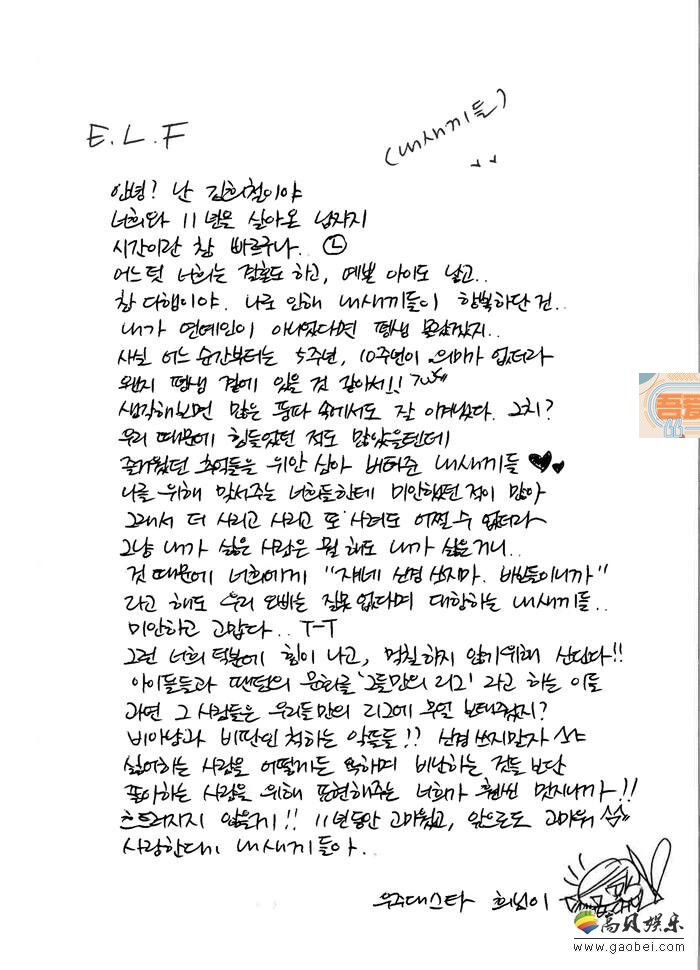 E.L.F
(내새끼들)
안녕? 난 김희철이야
너희와 11년을 살아온 남자지
시간이란 참 빠르구나..
어느덧 너희는 결혼도 하고, 예쁜 아이도 낳고..
참 다행이야. 나로 인해 내새끼들이 행복하단 건..
내가 연예인이 아니었다면 평생 몰랐겠지..
사실 어느 순간부터는 5주년, 10주년이 의미가 없더라
왠지 평생 곁에 있을 것 같아서!!
생각해보면 많은 풍파 속에서도 잘 이겨냈다. 그치?
우리 때문에 힘들었던 적도 많았을텐데
즐거웠던 추억들을 위안 삼아 버텨준 내새끼들
나를 위해 맞서주는 너희들한테 미안했던 적이 많아
그래서 더 사리고 사리고 또 사려도 어쩔 수 없더라
그냥 내가 싫은 사람은 뭘 해도 내가 싫은거니..
것 때문에 너희에게 "쟤네 신경 쓰지마. 바보들이니까"
라고 해도 우리 오빠는 잘못 없다며 대항하는 내새끼들..
미안하고 고맙다.. T-T
그런 너희 덕분에 힘이 나고, 먹칠하지 않기위해 산단다!!
아이돌들과 팬덤의 문화를 '그들만의 리그' 라고 하는 이들
과연 그 사람들은 우리들만의 리그에 무얼 보태줬지?
비아냥과 비판인 척하는 악플들!! 신경 쓰지말자
싫어하는 사람을 어떻게든 욕하며 비난하는 것들 보단
좋아하는 사람을 위해 표현해주는 너희가 훨씬 멋지니까!!
흐트러지지 않을게!! 11년동안 고마웠고, 앞으로도 고마워
사랑한다 내새끼들아..
우주대스타 희님이
吾爱
高贝娱乐
www.gaobei.com